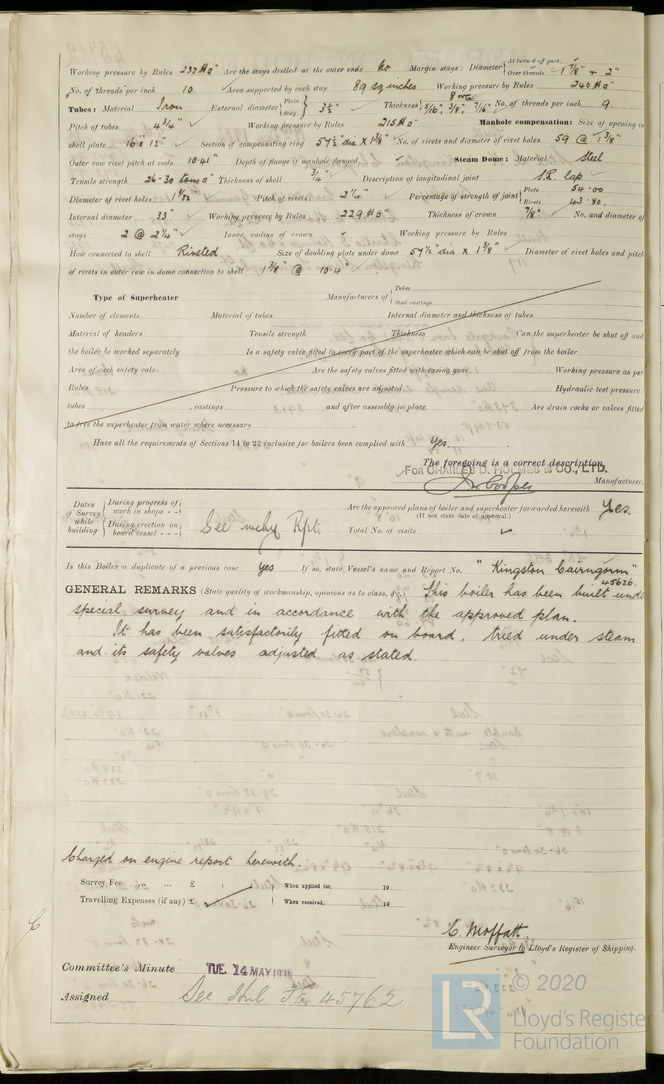 Working pressure by Rules 232 lbs □" Are the stays drilled at the outer ends No Margin stays: Diameter { At turned off part, or Over threads 1 7/8" + 2"
No. of threads per inch 10 Area supported by each stay 89 sq inches Working pressure by Rules 240 lbs □"
Tubes: Material Iron External diameter { Plain Stay 3½" Thickness { 8 WG 5/16", 3/8", 7/16" No. of threads per inch 9
Pitch of tubes 4¾" Working pressure by Rules 215 lbs □" Manhole compensation: Size of opening in
shell plate 16" x 12" Section of compensating ring 57½" dia x 1 3/8" No. of rivets and diameter of rivet holes 59 @ 1 3/8"
Outer row rivet pitch at ends 10.41" Depth of flange if manhole flanged Steam Dome: Material Steel
Tensile strength 26-30 tons □" Thickness of shell ¾" Description of longitudinal joint S.R. lap
Diameter of rivet holes Pitch of rivets 2¼" Percentage of strength of joint { Plate 54.00 Rivets 43.80.
Internal diameter 33" Working pressure by Rules 229 lbs □" Thickness of crown 7/8" No. and diameter of
stays 2 @ 2¼" Inner radius of crown Working pressure by Rules
How connected to shell Riveted Size of doubling plate under dome 57½" dia x 1 3/8" Diameter of rivet holes and pitch
of rivets in outer row in dome connection to shell 1 3/8" @ 10.4"
Type of Superheater Manufacturers of { Tubes Steel castings
Number of elements Material of tubes Internal diameter and thickness of tubes
Material of headers Tensile strength Thickness Can the superheater be shut off and
the boiler be worked separately Is a safety valve fitted to every part of the superheater which can be shut off from the boiler
Area of each safety valve Are the safety valves fitted with easing gear Working pressure as per
Rules Pressure to which the safety valves are adjusted Hydraulic test pressure:
tubes , castings and after assembly in place Are drain cocks or valves fitted
to free the superheater from water where necessary
Have all the requirements of Sections 14 to 22 inclusive for boilers been complied with Yes.
The foregoing is a correct description,
FOR CHARLES D. HOLMES & CO., LTD.
Manufacturer.
Dates of Survey while building { During progress of work in shops - - During erection on board vessel - - - } See mchy Rpt. Are the approved plans of boiler and superheater forwarded herewith Yes.
(If not state date of approval.)
Total No. of visits
Is this Boiler a duplicate of a previous case Yes If so, state Vessel's name and Report No. "Kingston Cairngorm" 45626.
GENERAL REMARKS (State quality of workmanship, opinions as to class, &c.) This boiler has been built under
special survey and in accordance with the approved plan.
It has been satisfactorily fitted on board, tried under steam
and its safety valves adjusted as stated.
Charged on engine report herewith.
Survey Fee ... ... £ : : When applied for, 19
Travelling Expenses (if any) £ When received, 19
C. Moffatt.
Engineer Surveyor to Lloyd's Register of Shipping.
Committee's Minute TUE. 14 MAY 1935
Assigned See Hul J.E. 45762
© 2020
Lloyd's Register
Foundation